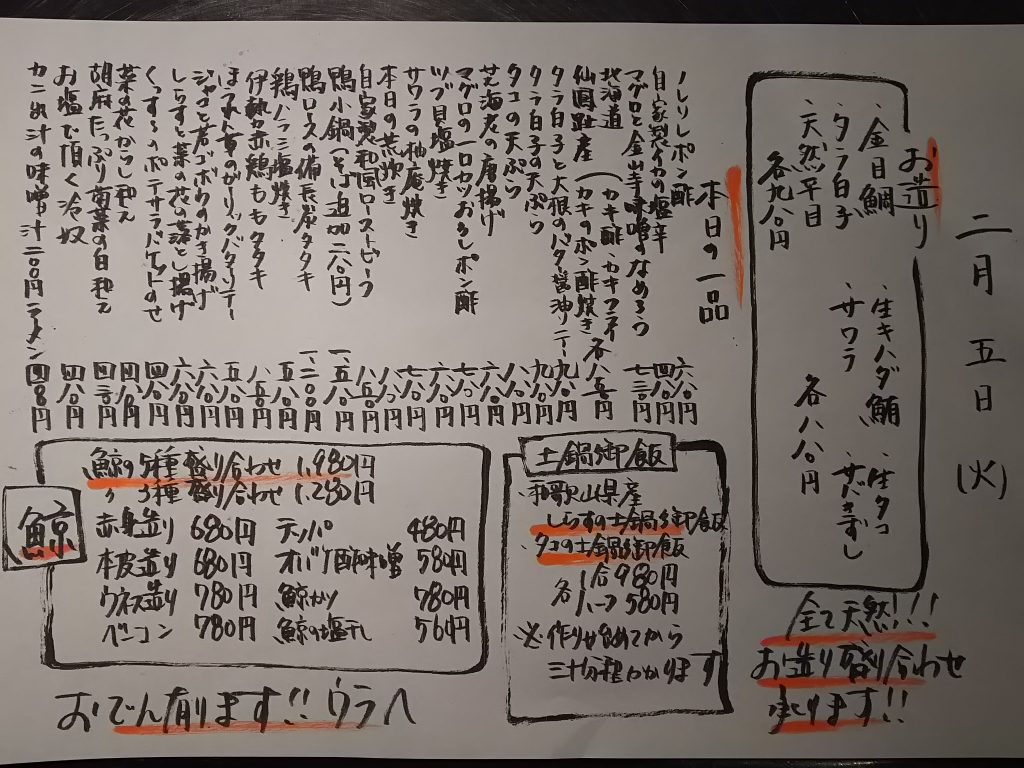 二月五日(火)
お造り
・金目鯛
・タラ白子
・天然平目
各九八〇円
・生キハダ鮪
・サワラ
各八八〇円
・生タコ
・サバきずし
全て天然!!!
お造り盛り合わせ
承ります!!
本日の一品
ノレソレポン酢 六八〇円
自家製イカの塩辛 四八〇円
マグロと金山寺味噌のなめろう 七三〇円
北海道
仙鳳趾産(カキ酢、カキフライ
カキのポン酢焼き 各八五〇円
タラ白子と大根のバター醤油ソテー 九八〇円
タラ白子の天ぷら 九八〇円
タコの天ぷら 八八〇円
甘え海老の唐揚げ 八八〇円
マグロの一口カツおろしポン酢 七八〇円
ツブ貝塩焼き 六八〇円
サワラの柚庵焼き 七八〇円
本日の荒炊き 八八〇円
自家製和風ローストビーフ 八五〇円
鴨小鍋(そば追加二八〇円) 一、五八〇円
鴨ロースの備長炭タタキ 一、二八〇円
鶏ハラミ塩焼き 五八〇円
伊勢赤鶏ももタタキ 八五〇円
ほうれん草のガーリックバターソテー 五八〇円
ジャコと若ゴボウのかき揚げ 六八〇円
しらすと菜の花の落とし揚げ 六八〇円
くんすものポテサラバケットのせ 四八〇円
菜の花からし和え 四八〇円
胡麻たっぷり菊菜の白和え 四三〇円
お塩で頂く冷奴 四八〇円
カニ出汁の味噌汁二〇〇円ラーメン 四八〇円
土鍋御飯
・和歌山県産
しらすの土鍋御飯
・タコの土鍋御飯
各 1合 980円
ハーフ 580円
※作り始めてから
三十分程かかります
鯨
鯨の5種盛り合わせ 1,980円
〃 3種盛り合わせ 1,280円
赤身造り 680円 テッパ 480円
本皮造り 680円 オバケ酢味噌 580円
ウネス造り 780円 鯨カツ 780円
ベーコン 780円 鯨の塩干し 560円
おでん有ります!!ウラへ